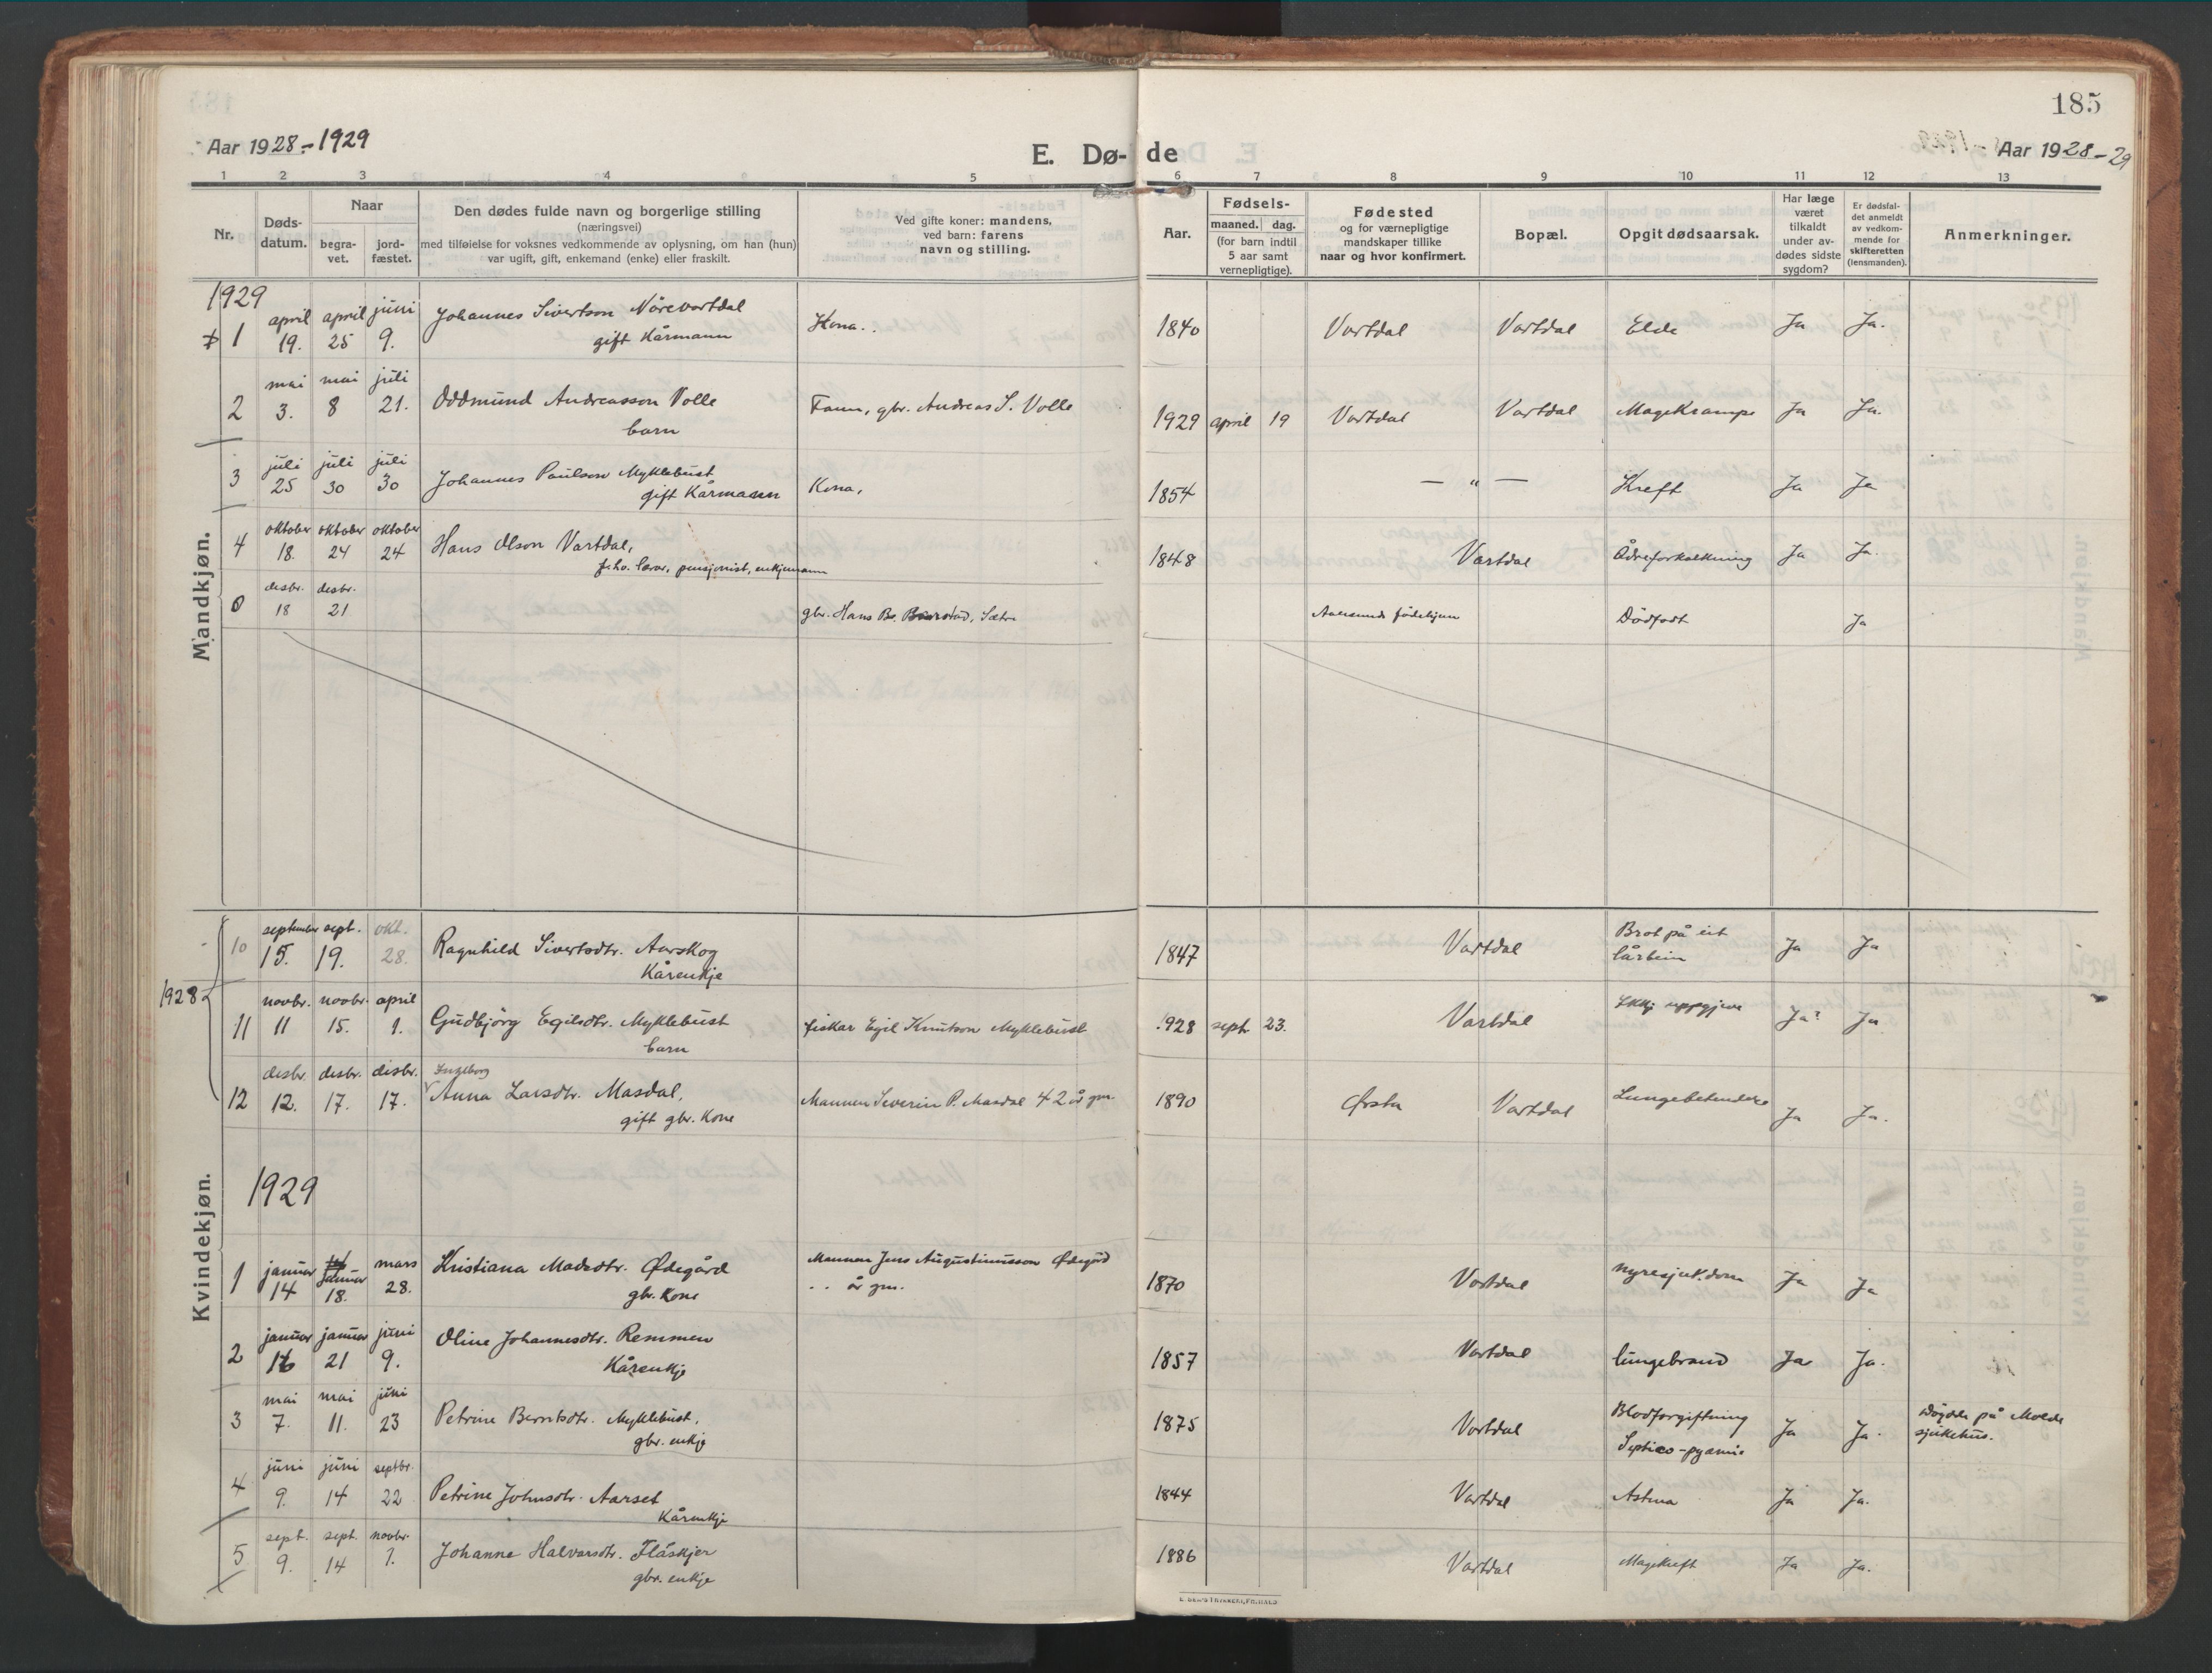 185
Aar 1928-1929
E. Dø-de
Aar 1928-29
1 2 3 4 5 6 7 8 9 10 11 12 13
Nr.
Døds-datum.
Naar
begra-vet.
jord-fæstet.
Den dødes fulde navn og borgerlige stilling
(næringsvei)
med tilføielse for voksnes vedkommende av oplysning, om han (hun)
var ugift, gift, enkemand (enke) eller fraskilt.
Ved gifte koner: mandens,
ved barn: farens
navn og stilling.
Aar.
Fødsels-
maaned. dag.
(for barn indtil
5 aar samt
vernepligtige).
Fødested
og for værnepligtige
mandskaper tillike
naar og hvor konfirmert.
Bopæl.
Opgit dødsaarsak.
Har læge
været
tilkaldt
under av-
dødes sidste
sygdom?
Er dødsfal-
det anmeldt
av vedkom-
mende for
skifteretten
(lensmanden).
Anmerkninger.
Mandkjøn.
1929
1 april 19. april 25 juni 9. Johannes Sivertson Nørevartdal Kona.. 1840 Vartdal Vartdal Elde Ja Ja.
gift Kårmann
2 mai 3. mai 8 juli 21. Oddmund Andreasson Volle Faren, gbr. Andreas S. Volle 1929 april 19 Vartdal Vartdal Magekrampe Ja Ja.
barn
3 juli 25 juli 30 juli 30 Johannes Paulson Myklebust Kona, 1854 — " — Kreft Ja Ja
gift Kårmann
4 oktober 18. oktober 24 oktober 24 Hans Olson Vartdal, 1848 Vartdal Ådreforkalkning Ja Ja.
f.hv. lærar, pensjonist, enkjemann
0 desbr. 18 desbr. 21 gbr. Hans B. Sætre Aalesunds fødehjem Dödfødt Ja
Kvindekjøn.
1928
10 september 15. sept. 19. okt. 28. Ragnhild Sivertsdtr. Aarskog 1847 Vartdal Brot på eit lårbein Ja Ja
Kårenkje
11 novbr. 11 novbr. 15. april 1. Gudbjörg Egilsdtr. Myklebust fiskar Egil Knutson Myklebust 1928 sept. 23. Vartdal Ikkj uppgjeve Ja? Ja
barn
Ingeborg
12 desbr. 12. desbr. 17. desbr. 17. Anna Larsdtr. Masdal, Mannen Severin P. Masdal 42 år gm. 1890 Ørsta Vartdal Lungebetendelse Ja Ja.
gift gbr. Kone
1929
1 januar 14 januar 18. mars 28. Kristiana Madsdtr. Ødegård Mannen Jens Augustinusson Ødegård 1870 Vartdal nyresjukdom Ja Ja
gbr. Kone .. år gm.
2 januar 16 januar 21 juni 9. Oline Johannesdtr. Remmen 1857 Vartdal lungebrand Ja Ja.
Kårenkje
3 mai 7. mai 11. juni 23 Petrine Berntsdtr. Myklebust, 1875 Vartdal Blodforgiftning Ja Ja. Döydde på Molde
gbr. enkje Septico-pyæmie sjukehus.
4 juni 9. juni 14 septbr. 22 Petrine Johnsdtr. Aarset 1844 Vartdal Astma Ja Ja.
Kårenkje
5 sept. 9. sept. 14 novbr. 1. Johanne Halvarsdtr. Flåskjer 1886 Vartdal Magekreft Ja Ja.
gbr. enkje